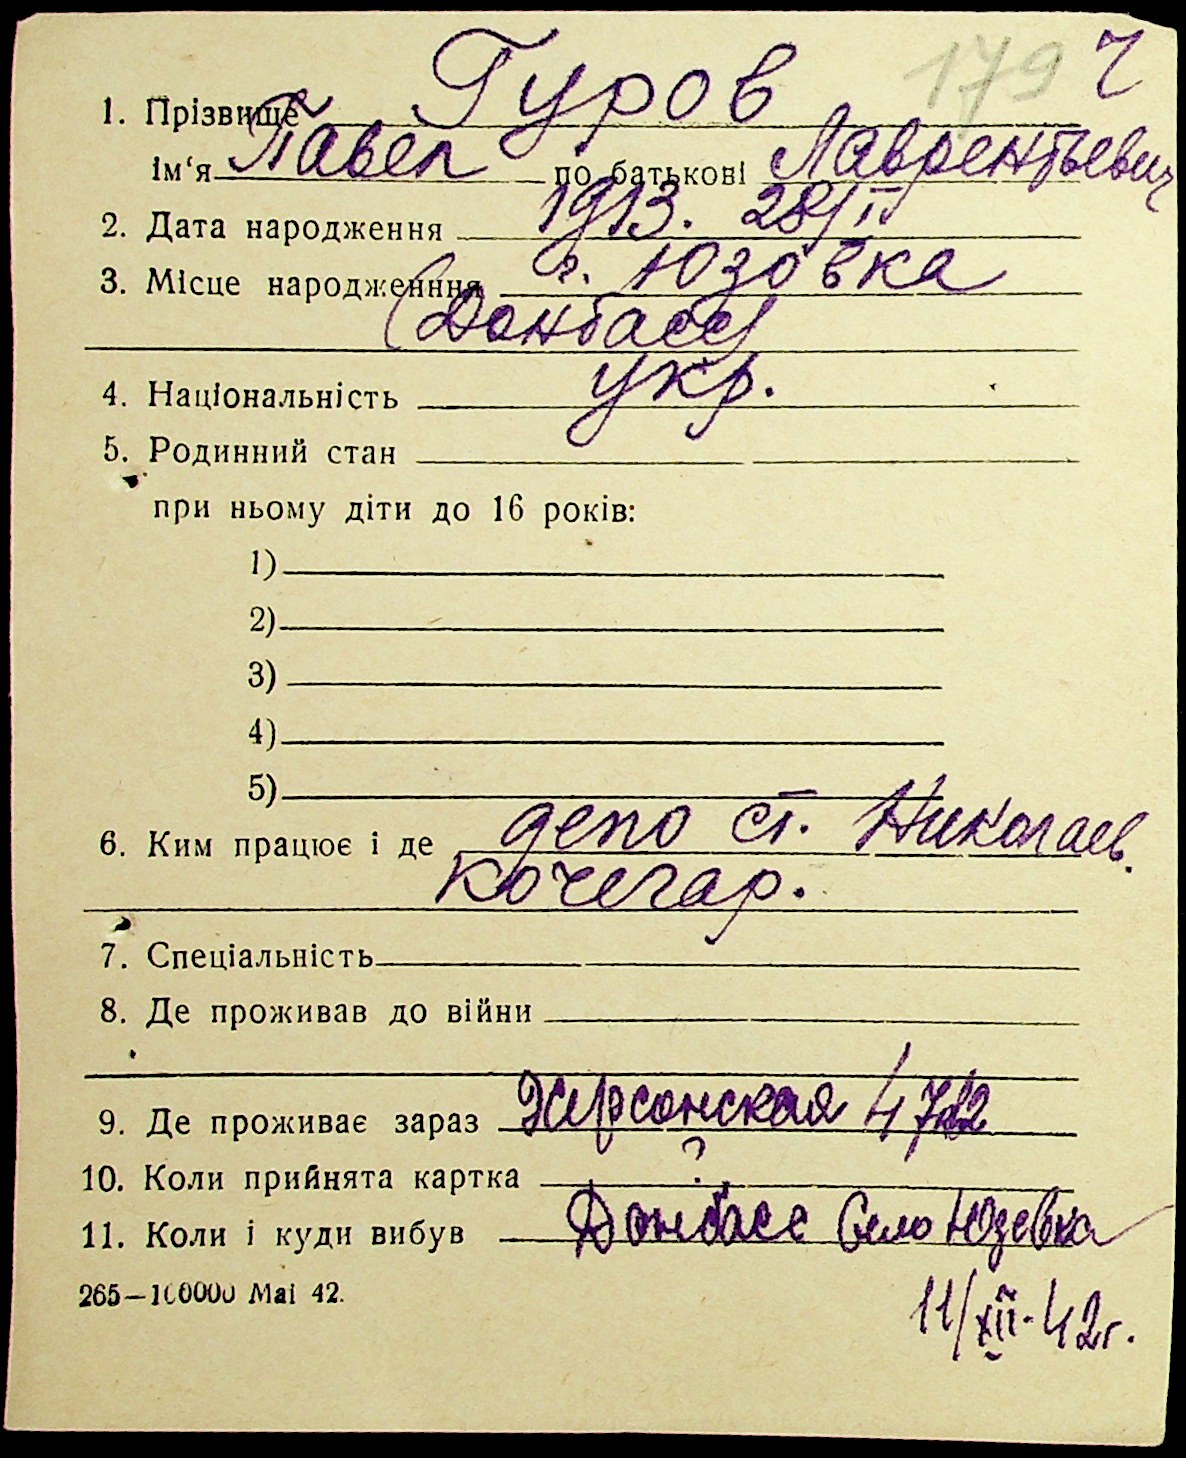 179 ч
1. Прізвище Гуров
ім‘я Павел по батькові Лаврентьевич
2. Дата народження 1913. 28/II
3. Місце народженння г. Юзовка
(Донбасс)
4. Національність укр.
5. Родинний стан
при ньому діти до 16 років:
1)
2)
3)
4)
5)
6. Ким працює і де депо ст. Николаев.
кочегар.
7. Спеціальність
8. Де проживав до війни
9. Де проживає зараз Херсонская
10. Коли прийнята картка ?
11. Коли і куди вибув Донбасс Село Юзевка
265—100000 Mai 42.
11/XII-42г.